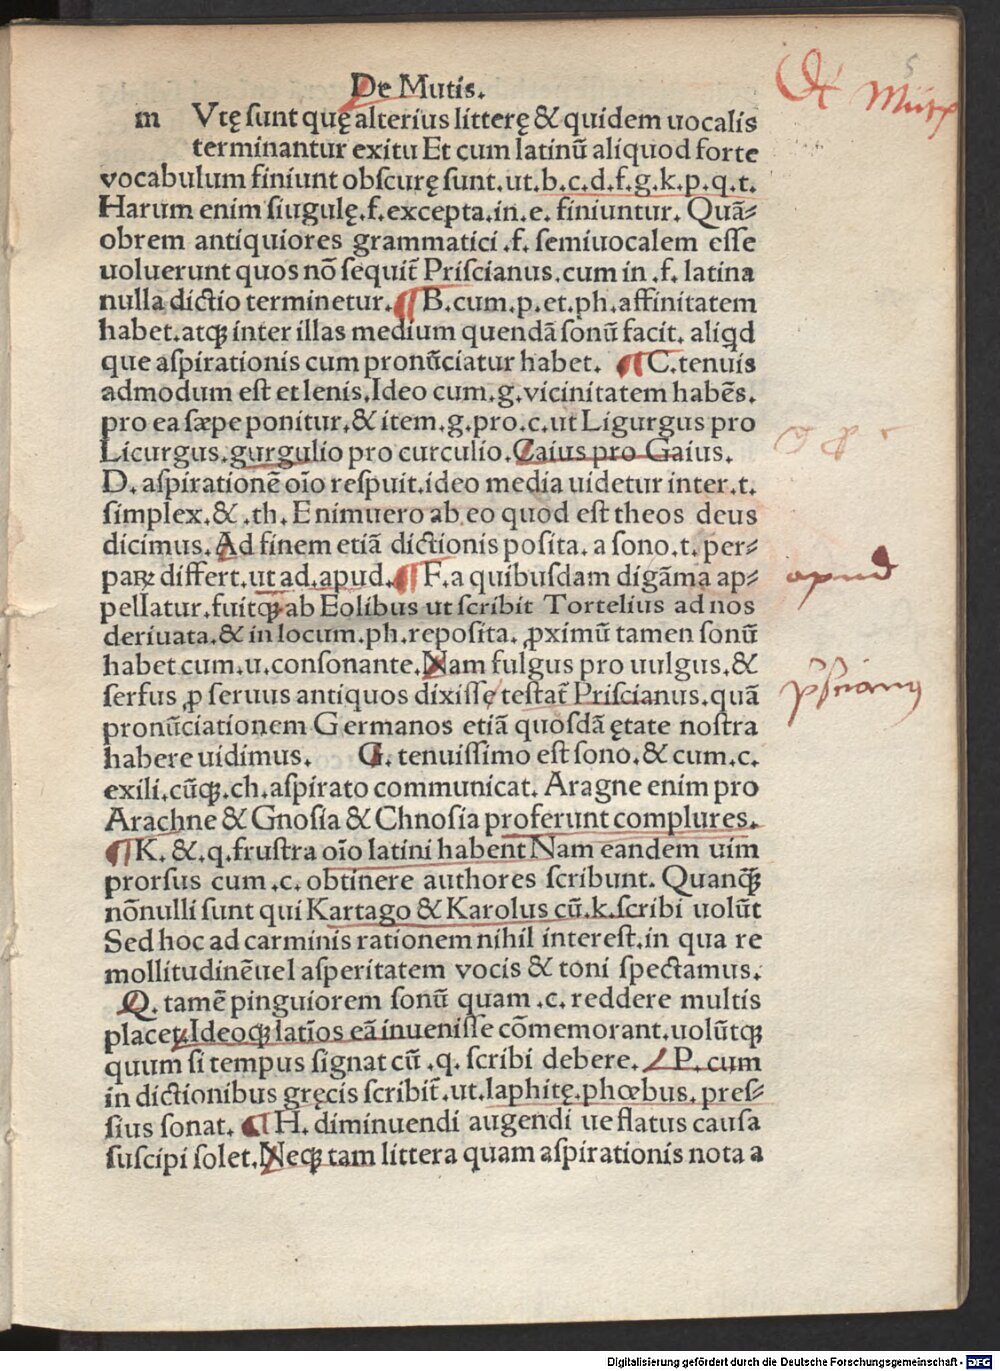 5
De Mutis.
De Mutis
m Vtę sunt quę alterius litterę & quidem uocalis
terminantur exitu Et cum latinū aliquod forte
vocabulum finiunt obscurę sunt.ut.b.c.d.f.g.k.p.q.t.
Harum enim siugulę.f.excepta.in.e. finiuntur. Quā⸗
obrem antiquiores grammatici .f. semiuocalem esse
uoluerunt quos nō sequit̄ Priscianus.cum in .f. latina
nulla dictio terminetur. ¶ B.cum.p.et.ph.affinitatem
habet.atqꝫ inter illas medium quendā sonū facit. aliqd
que aspirationis cum pronūciatur habet. ¶ C.tenuis
admodum est et lenis.Ideo cum.g.vicinitatem habēs.
pro ea sæpe ponitur.& item.g.pro.c.ut Ligurgus pro
Licurgus.gurgulio pro curculio.Caius pro Gaius.
D. aspirationē oīo respuit.ideo media uidetur inter.t.
simplex.& .th. Enimuero ab eo quod est theos deus
dicimus. Ad finem etiā dictionis posita. a sono.t. per⸗
paꝝ differt.ut ad.apud. ¶ F.a quibusdam digāma ap⸗
apud
pellatur.fuitqꝫ ab Eolibus ut scribit Tortelius ad nos
deriuata.& in locum.ph.reposita. ꝓximū tamen sonū
habet cum.u.consonante.Nam fulgus pro uulgus.&
serfus ꝓ seruus antiquos dixissę testat̄ Priscianus.quā
pronūciationem Germanos etiā quosdā ętate nostra
habere uidimus. G. tenuissimo est sono.& cum.c.
exili.cūqꝫ.ch.aspirato communicat. Aragne enim pro
Arachne & Gnosia & Chnosia proferunt complures.
¶ K. &.q.frustra oīo latini habent Nam eandem uim
prorsus cum .c. obtinere authores scribunt. Quanqꝫ̄
nōnulli sunt qui Kartago & Karolus cū.k.scribi uolūt
Sed hoc ad carminis rationem nihil interest.in qua re
mollitudinēuel asperitatem vocis & toni spectamus.
Q. tamē pinguiorem sonū quam .c. reddere multis
placet.Ideoqꝫ latīos eā inuenisse cōmemorant.uolūtqꝫ
quum si tempus signat cū .q. scribi debere. P. cum
in dictionibus gręcis scribit̄.ut.laphitę.phœbus. pres⸗
sius sonat. ¶ H. diminuendi augendi ue flatus causa
suscipi solet.Neqꝫ tam littera quam aspirationis nota a
Digitalisierung gefördert durch die Deutsche Forschungsgemeinschaft - DFG